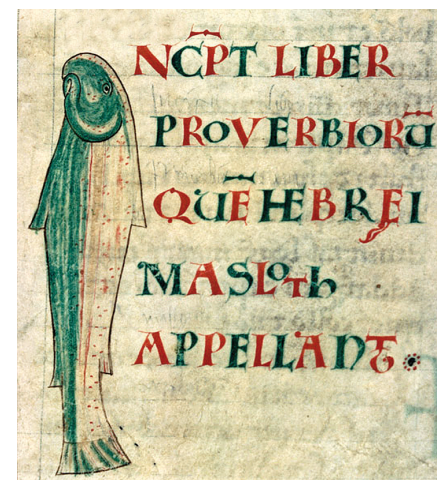 INCP̄T LIBER
PROVERBIORŪ
QUĒ HEBRĘI
MASLOTh
APPELLANT.